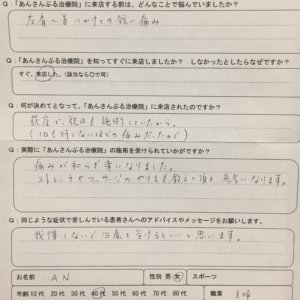 Q：「あんさんぶる治療院」に来店する前は、どんなことで悩んでいましたか？
左肩〜首にかけての鋭い痛み
Q：「あんさんぶる治療院」を知ってすぐに来店しましたか？　しなかったとしたらなぜですか？
すぐ、来店した。（該当なら○で可）
Q：何が決めてとなって、「あんさんぶる治療院」に来店されたのですか？
荻窪で、祝日も施術していたから。
（1日も待てないほどの痛みだったので）
Q：実際に「あんさんぶる治療院」の施術を受けられていかがですか？
痛みが和らぎ楽になりました。
ストレッチやマッサージのやり方も教えて頂き参考になります。
Q：同じような症状で苦しんでいる患者さんへのアドバイスやメッセージをお願いします。
我慢しないで治療を受けるといいと思います。
お名前 AN 性別 男・女 スポーツ
年齢 10代 20代 30代 40代 50代 60代 70代 80代 職業 主婦